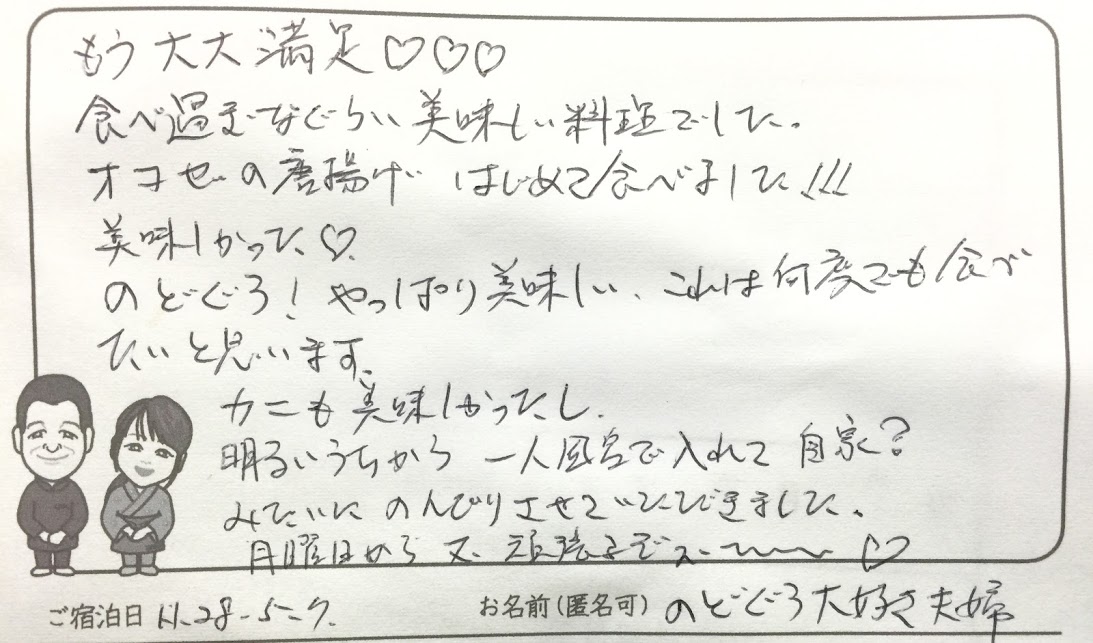 もう大大満足♡♡♡
食べ過ぎなぐらい美味しい料理でした。
オコゼの唐揚げ はじめて食べました!!!
美味しかった♡
のどぐろ!やっぱり美味しい、これは何度でも食べ
たいと思います。
カニも美味しかったし、
明るいうちから 一人風呂で入れて 自家?
みたいに のんびりさせていただきました。
月曜日から 又 頑張るぞぉー〜〜 ♡
ご宿泊日
お名前(匿名可) のどぐろ大好き夫婦